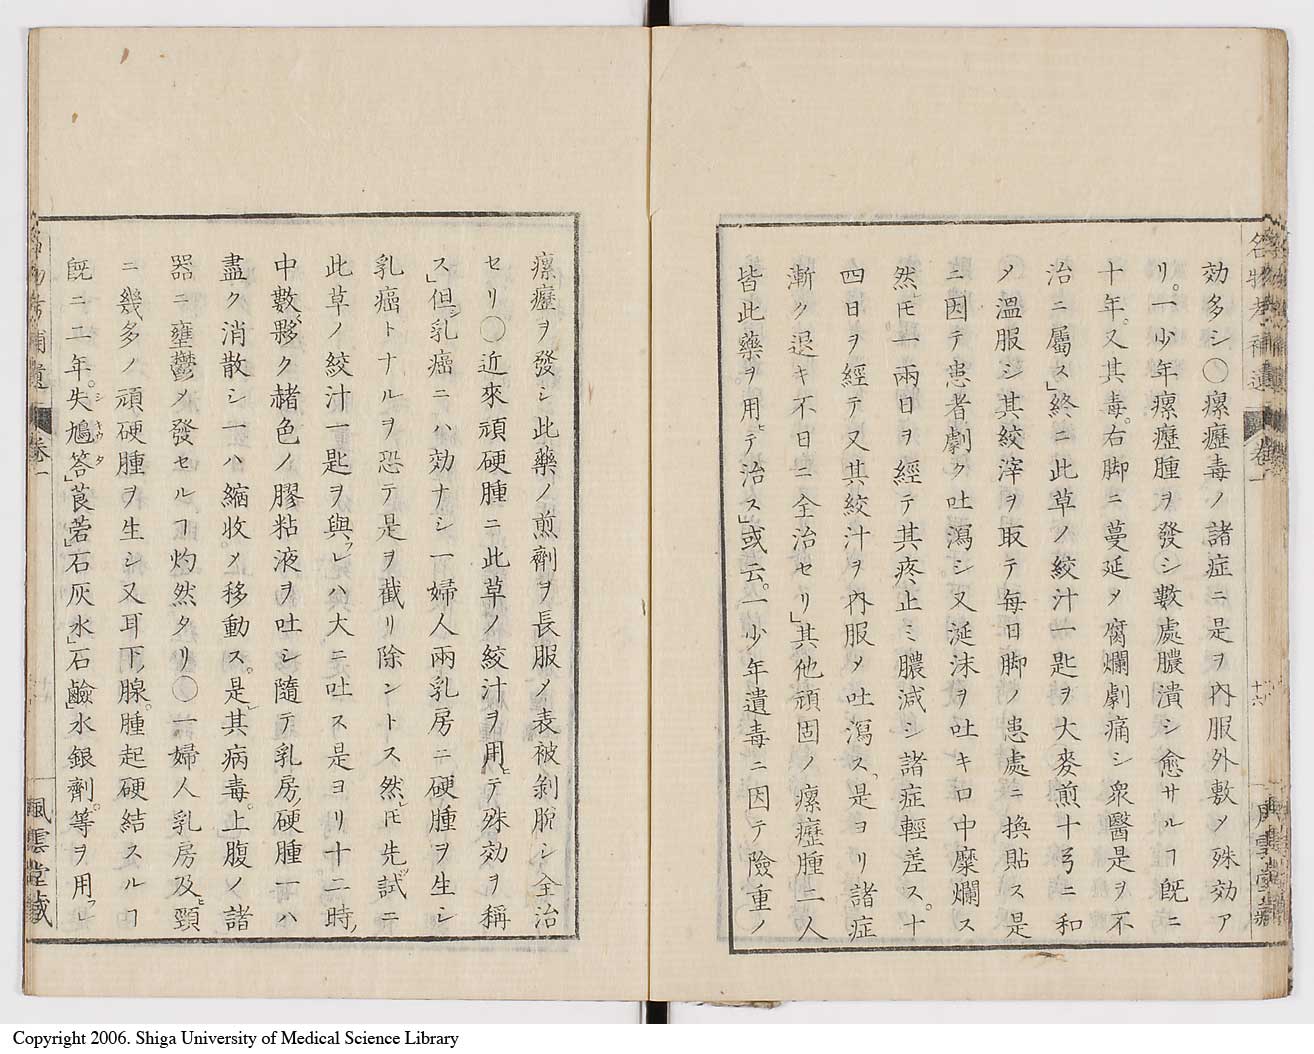 効多シ〇瘰癧毒ノ諸症ニ是ヲ內服外敷メ殊効ア
リ。一少年瘰癧腫ヲ發シ數處膿潰シ愈サルヿ旣ニ
十年。又其毒。右脚ニ蔓延メ腐爛劇痛シ衆醫是ヲ不
治ニ屬ス」終ニ此草ノ絞汁一匙ヲ大麥煎十弓ニ和
メ溫服シ其絞滓ヲ取テ每日脚ノ患處ニ換貼ス是
ニ因テ患者劇ク吐瀉シ又涎沫ヲ吐キ口中糜爛ス
然𪜈一兩日ヲ經テ其疼止ミ膿減シ諸症輕差ス。十
四日ヲ經テ又其絞汁ヲ內服メ吐瀉ス是ヨリ諸症
漸ク退キ不日ニ全治セリ」其他頑固ノ瘰癧腫二人
皆此藥ヲ用ヒテ治ス」或云。一少年遺毒ニ因テ險重ノ
名物考補遺 卷一
十六
風雲堂藏
瘰癧ヲ發シ此藥ノ煎劑ヲ長服メ表被剝脫シ全治
セリ〇近來頑硬腫ニ此草ノ絞汁ヲ用ヒテ殊効ヲ稱
ス」但シ乳癌ニハ効ナシ一婦人兩乳房ニ硬腫ヲ生シ
乳癌トナルヲ恐テ是ヲ截リ除ントス然レ𪜈先ツ試ニ
此草ノ絞汁一匙ヲ與フレハ大ニ吐ス是ヨリ十二時ノ
中數夥ク赭色ノ膠粘液ヲ吐シ隨テ乳房ノ硬腫一ハ
盡ク消散シ一ハ縮收メ移動ス。是レ其病毒。上腹ノ諸
器ニ壅鬱メ發セルヿ灼然タリ〇一婦人乳房及ヒ頸
ニ幾多ノ頑硬腫ヲ生シ又耳下ノ腺。腫起硬結スルヿ
旣ニ二年。失鳩答」莨菪」石灰水」石鹼」水銀劑。等ヲ用フレ
名物考補遺 卷一
風雲堂藏
Copyright 2006. Shiga University of Medical Science Library